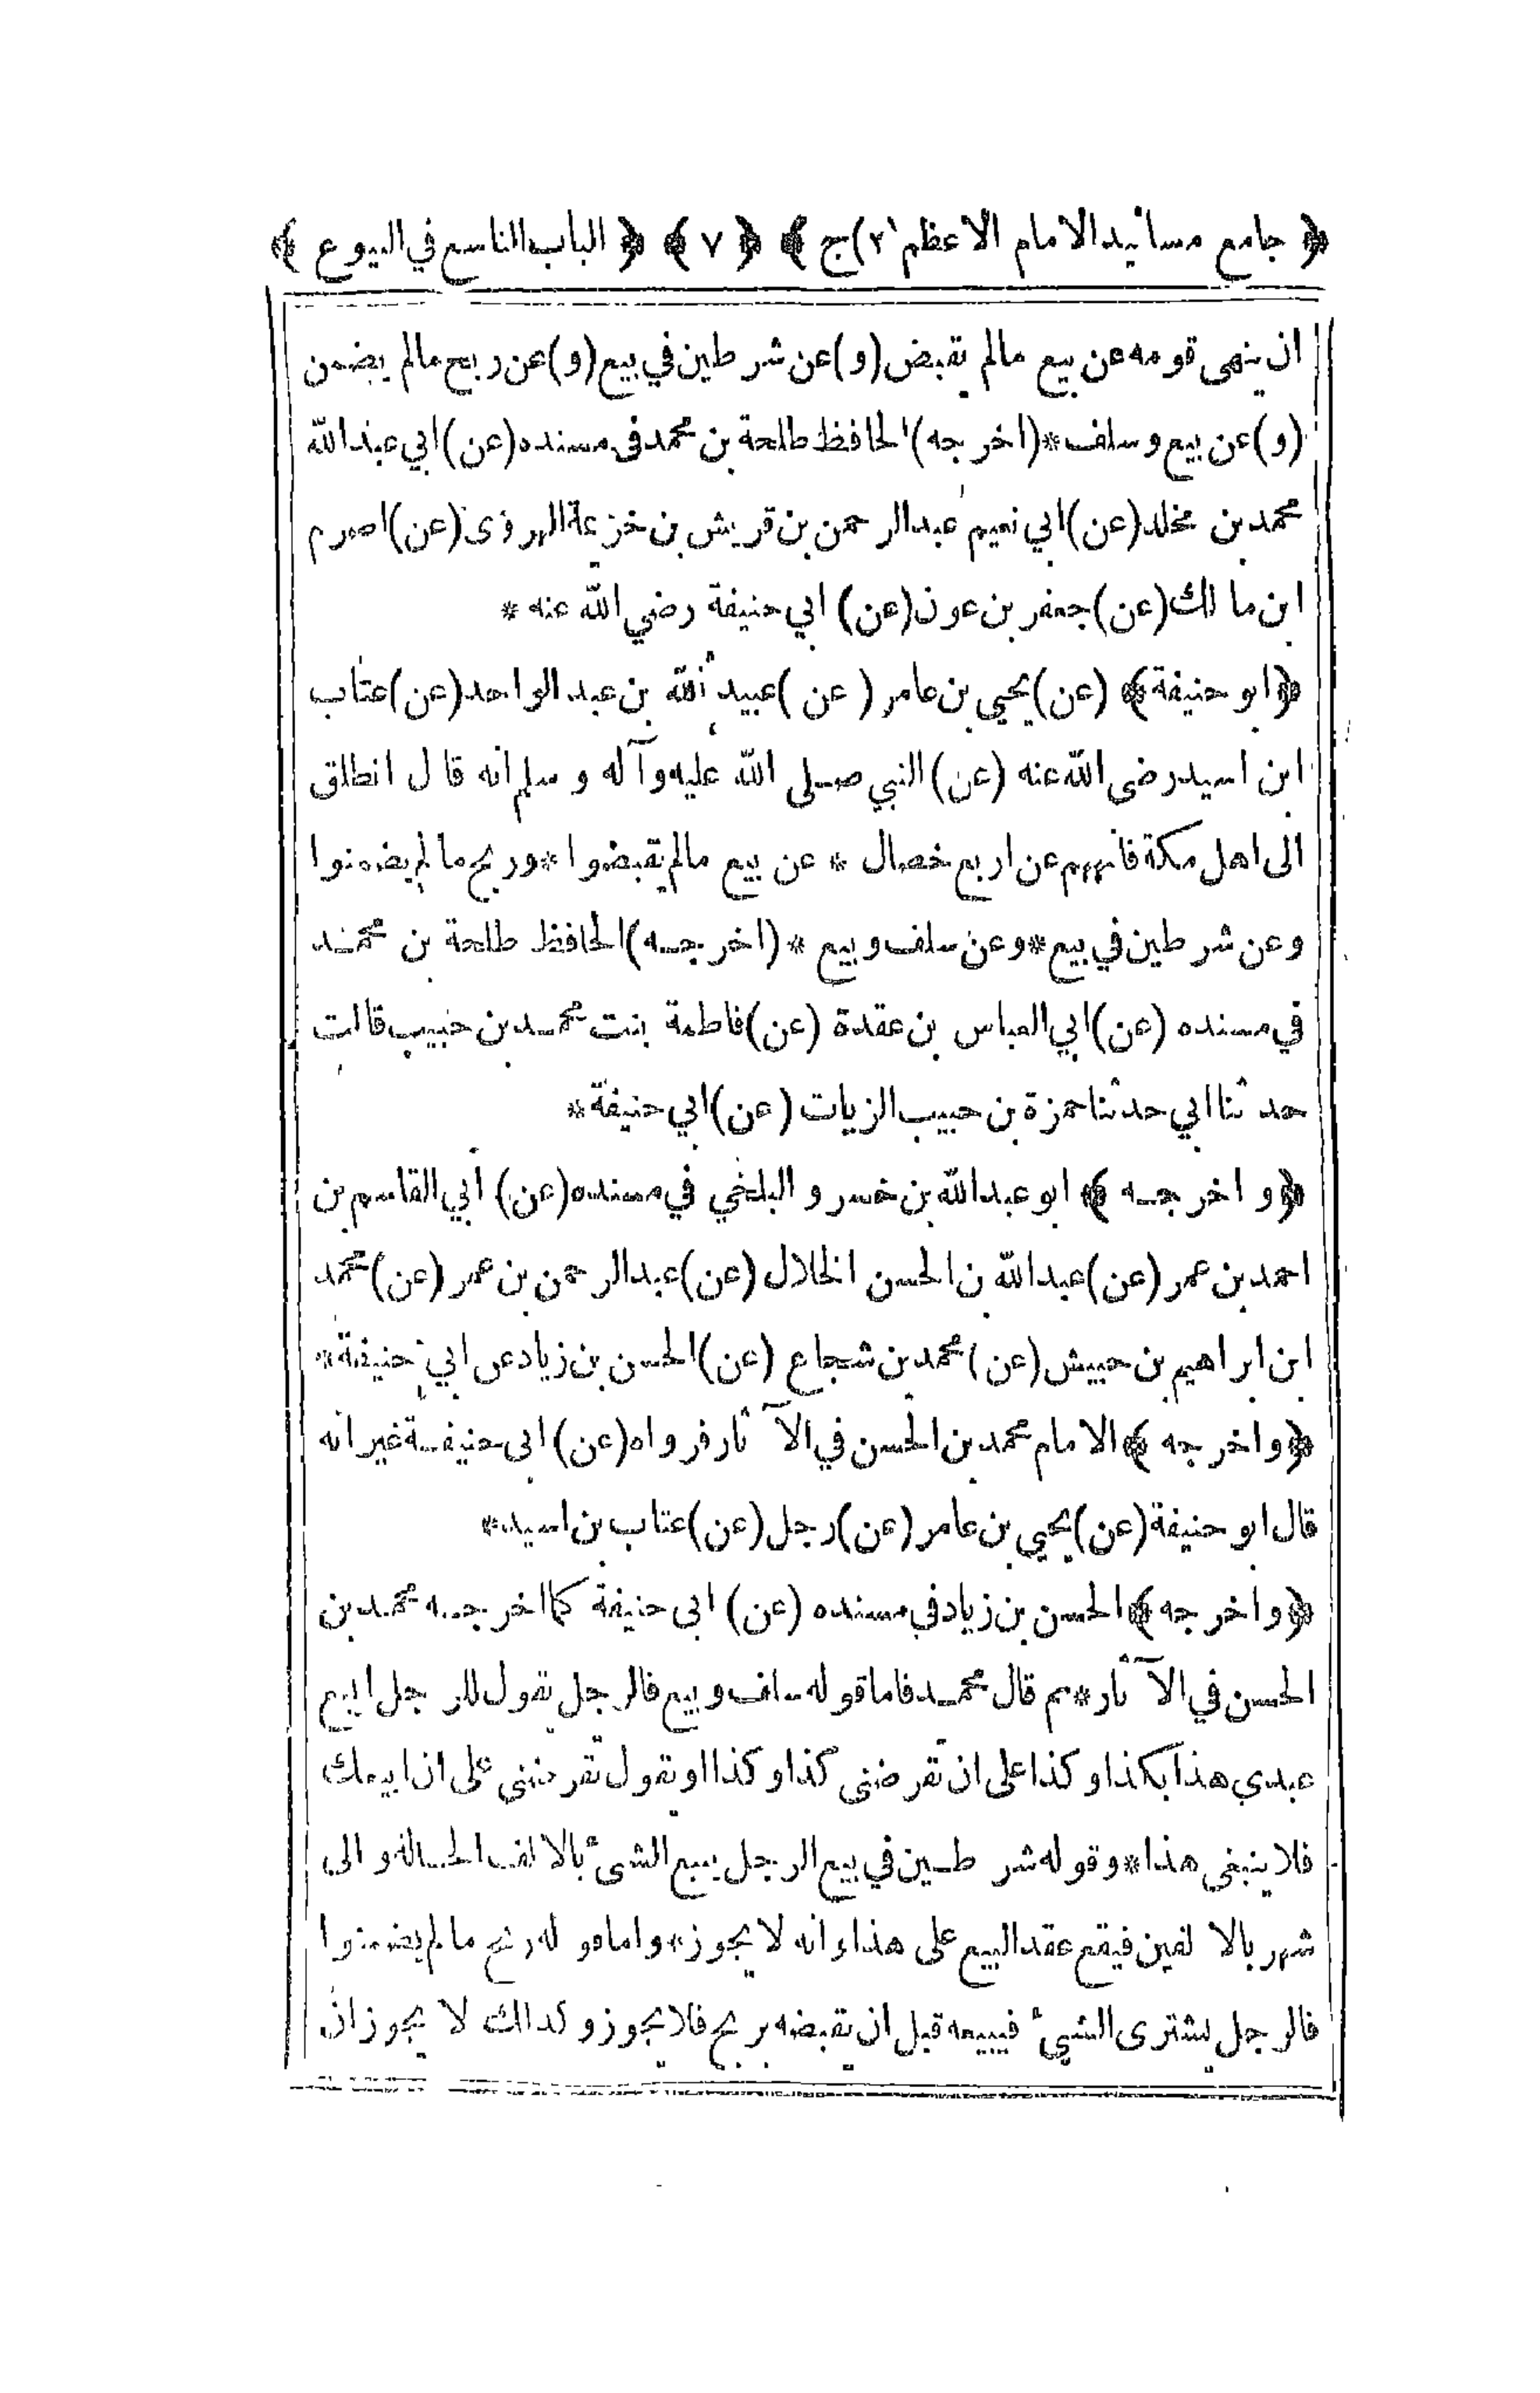 ﴿ جامع مسانيد الامام الاعظم (٢) ج ﴾ ﴿ ٧ ﴾ ﴿ الباب التاسع في البيوع ﴾
ان ينهى قومه عن بيع مالم يقبض (و) عن شرطين في بيع (و) عن ربح مالم يضمن
(و) عن بيع وسلف * (اخرجه) الحافظ طلحة بن محمد في مسنده (عن) ابي عبد الله
محمد بن مخلد (عن) ابي نعيم عبد الرحمن بن قريش بن خزيمة الهروى (عن) اصرم
ابن مالك (عن) جعفر بن عون (عن) ابي حنيفة رضي الله عنه *
﴿ ابو حنيفة ﴾ (عن) يحيي بن عامر (عن) عبيد الله بن عبد الواحد (عن) عتاب
ابن اسيد رضى الله عنه (عن) النبي صلى الله عليه وآله وسلم انه قال انطلق
الى اهل مكة فانههم عن اربع خصال * عن بيع مالم يقبضوا * وربح ما لم يضمنوا
وعن شرطين في بيع * وعن سلف وبيع * (اخرجه) الحافظ طلحة بن محمد
في مسنده (عن) ابي العباس بن عقدة (عن) فاطمة بنت محمد بن حبيب قالت
حدثنا ابي حدثنا حمزة بن حبيب الزيات (عن) ابي حنيفة *
﴿ واخرجه ﴾ ابو عبد الله بن خسرو البلخي في مسنده (عن) أبي القاسم بن
احمد بن عمر (عن) عبد الله بن الحسن الخلال (عن) عبد الرحمن بن عمر (عن) محمد
ابن ابراهيم بن حبيش (عن) محمد بن شجاع (عن) الحسن بن زياد عن ابي حنيفة *
﴿ واخرجه ﴾ الامام محمد بن الحسن في الآثار فرواه (عن) ابى حنيفة غير انه
قال ابو حنيفة (عن) يحيي بن عامر (عن) رجل (عن) عتاب بن اسيد *
﴿ واخرجه ﴾ الحسن بن زياد في مسنده (عن) ابى حنيفة كما اخرجه محمد بن
الحسن في الآثار * ثم قال محمد فاما قوله سلف وبيع فالرجل يقول للرجل ابيع
عبدي هذا بكذا وكذا على ان تقرضنى كذا وكذا او تقول تقرضنى على ان ابيعك
فلا ينبغى هذا * وقوله شرطين في بيع الرجل يبيع الشىء بالالف الحالة والى
شهر بالالفين فيقع عقد البيع على هذا وانه لا يجوز * واما قوله ربح ما لم يضمنوا
فالرجل يشترى الشيء فيبيعه قبل ان يقبضه بربح فلا يجوز وكذالك لا يجوز ان